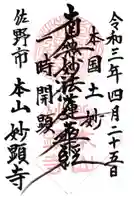 令和三年四月二十五日
本国土妙
南無妙法蓮華経
一時開顕
佐野市
本山妙顕寺